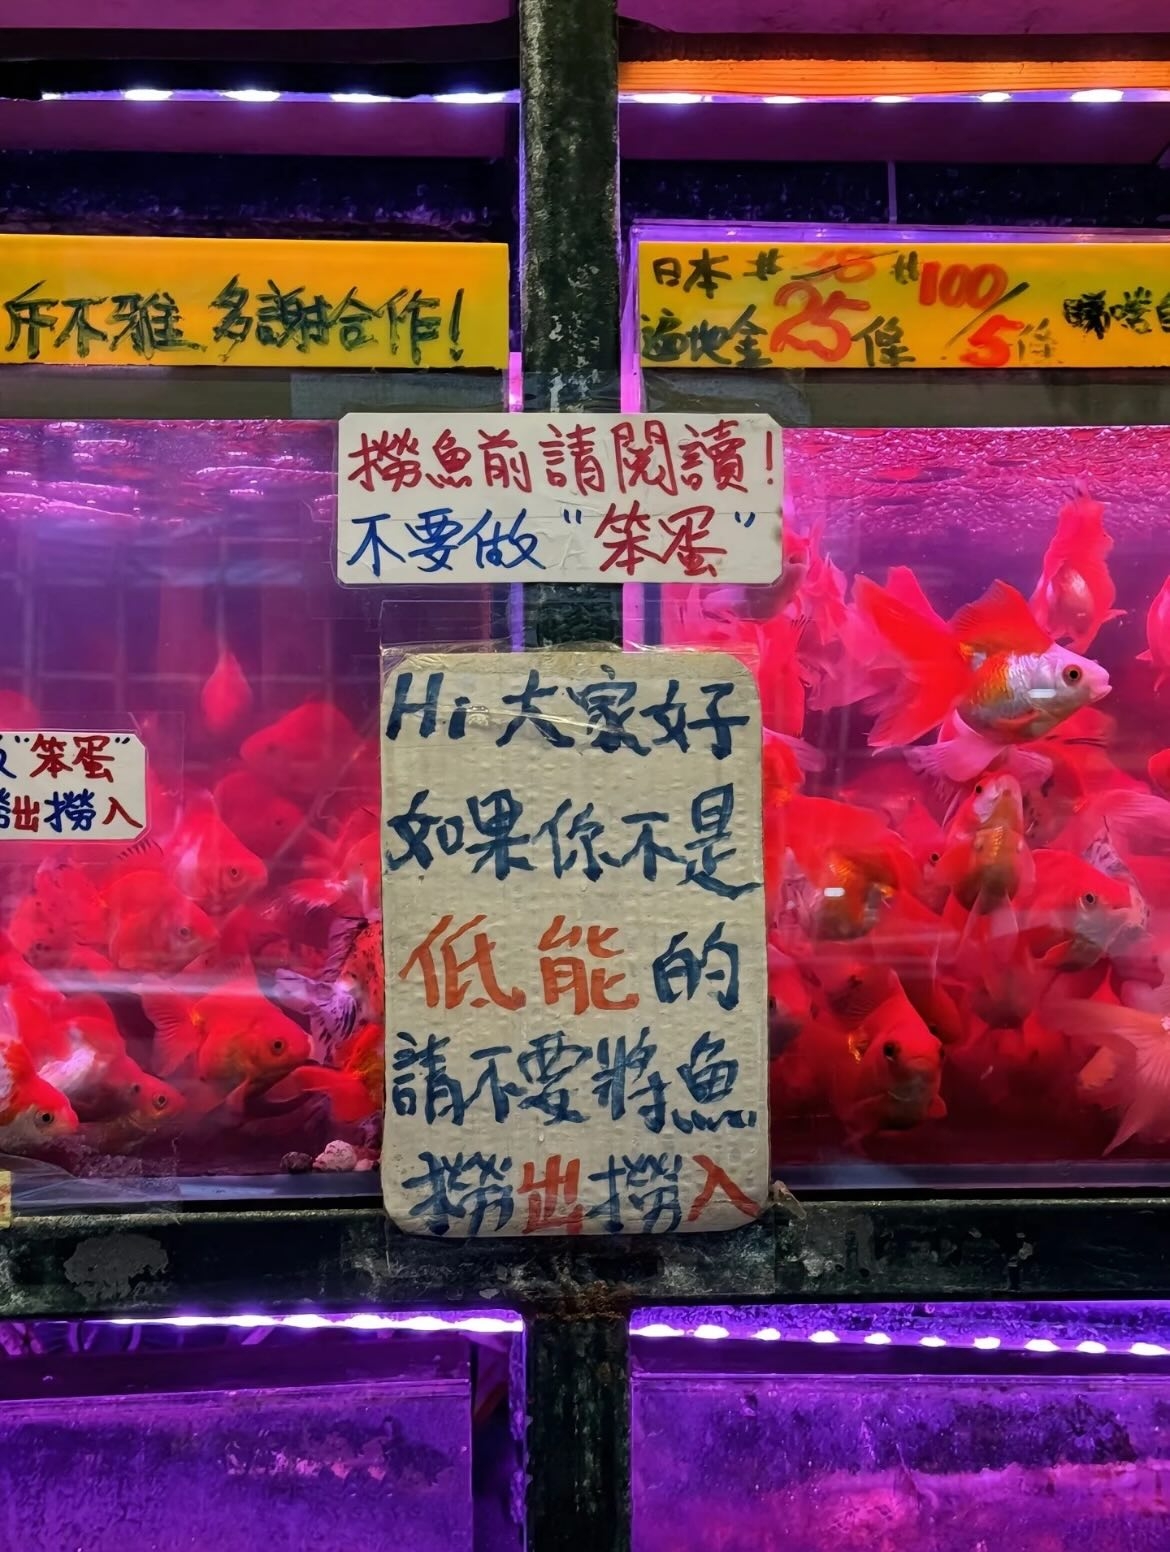 斥不雅 多謝合作!
日本 #18 #100/5條
遍地金 25條
睇啱
撈魚前請閱讀!
不要做"笨蛋"
"笨蛋"
撈出撈入
Hi 大家好
如果你不是
低能的
請不要將魚
撈出撈入